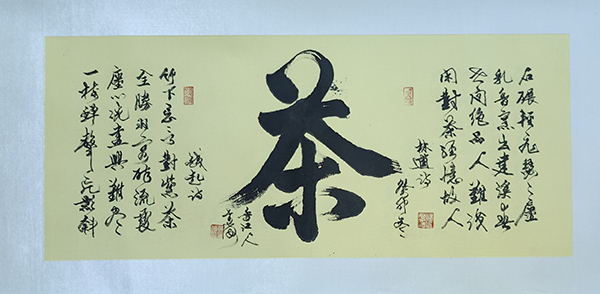 石碾輕飛瑟瑟塵
乳香烹出建溪春
世间絕品人難識
閑對茶經憶故人
林逋诗
茶
竹下忘言對紫茶
全勝羽客醉流霞
塵心洗盡興難盡
一樹蟬聲片影斜
錢起诗
香江人